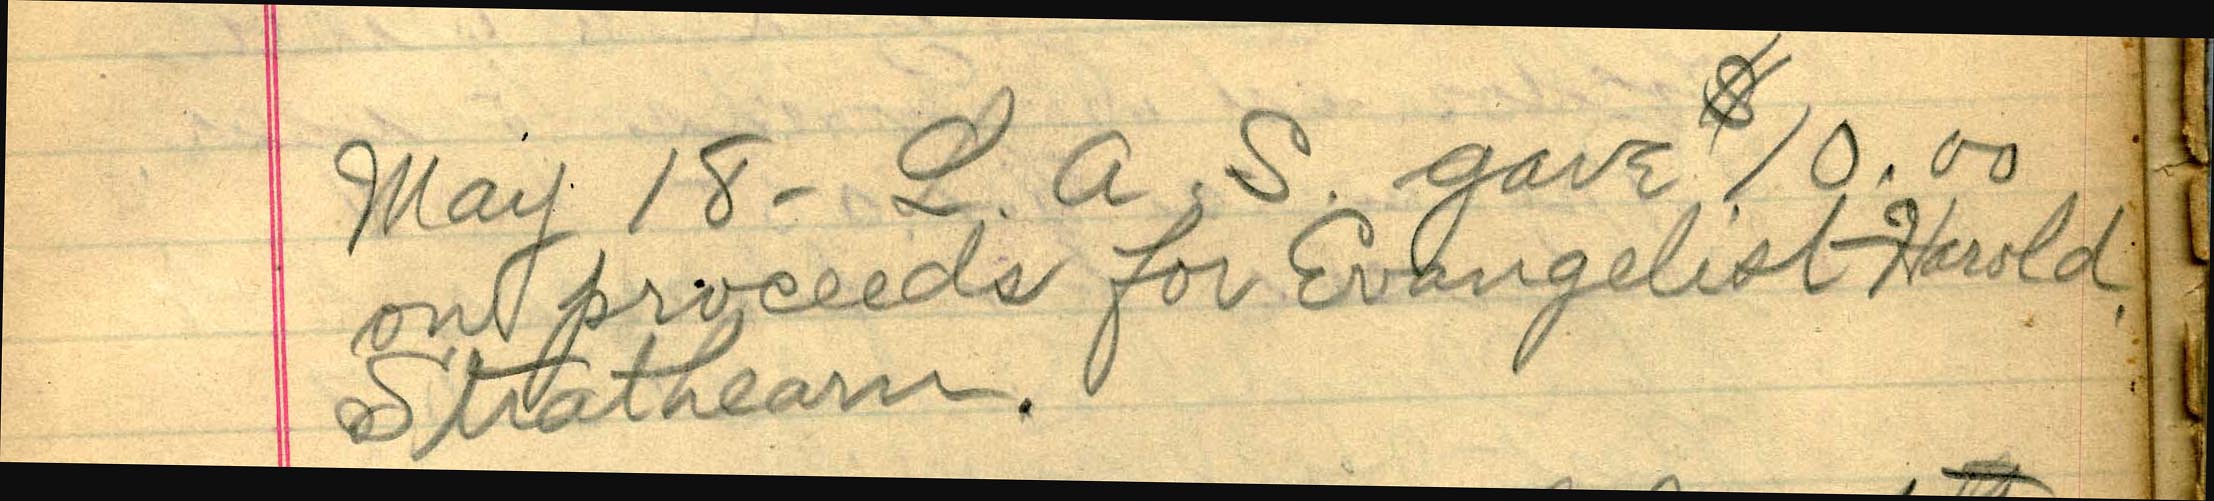 May 18 - L. A. S. gave $10.00
on proceeds for Evangelist Harold
Strathearn.